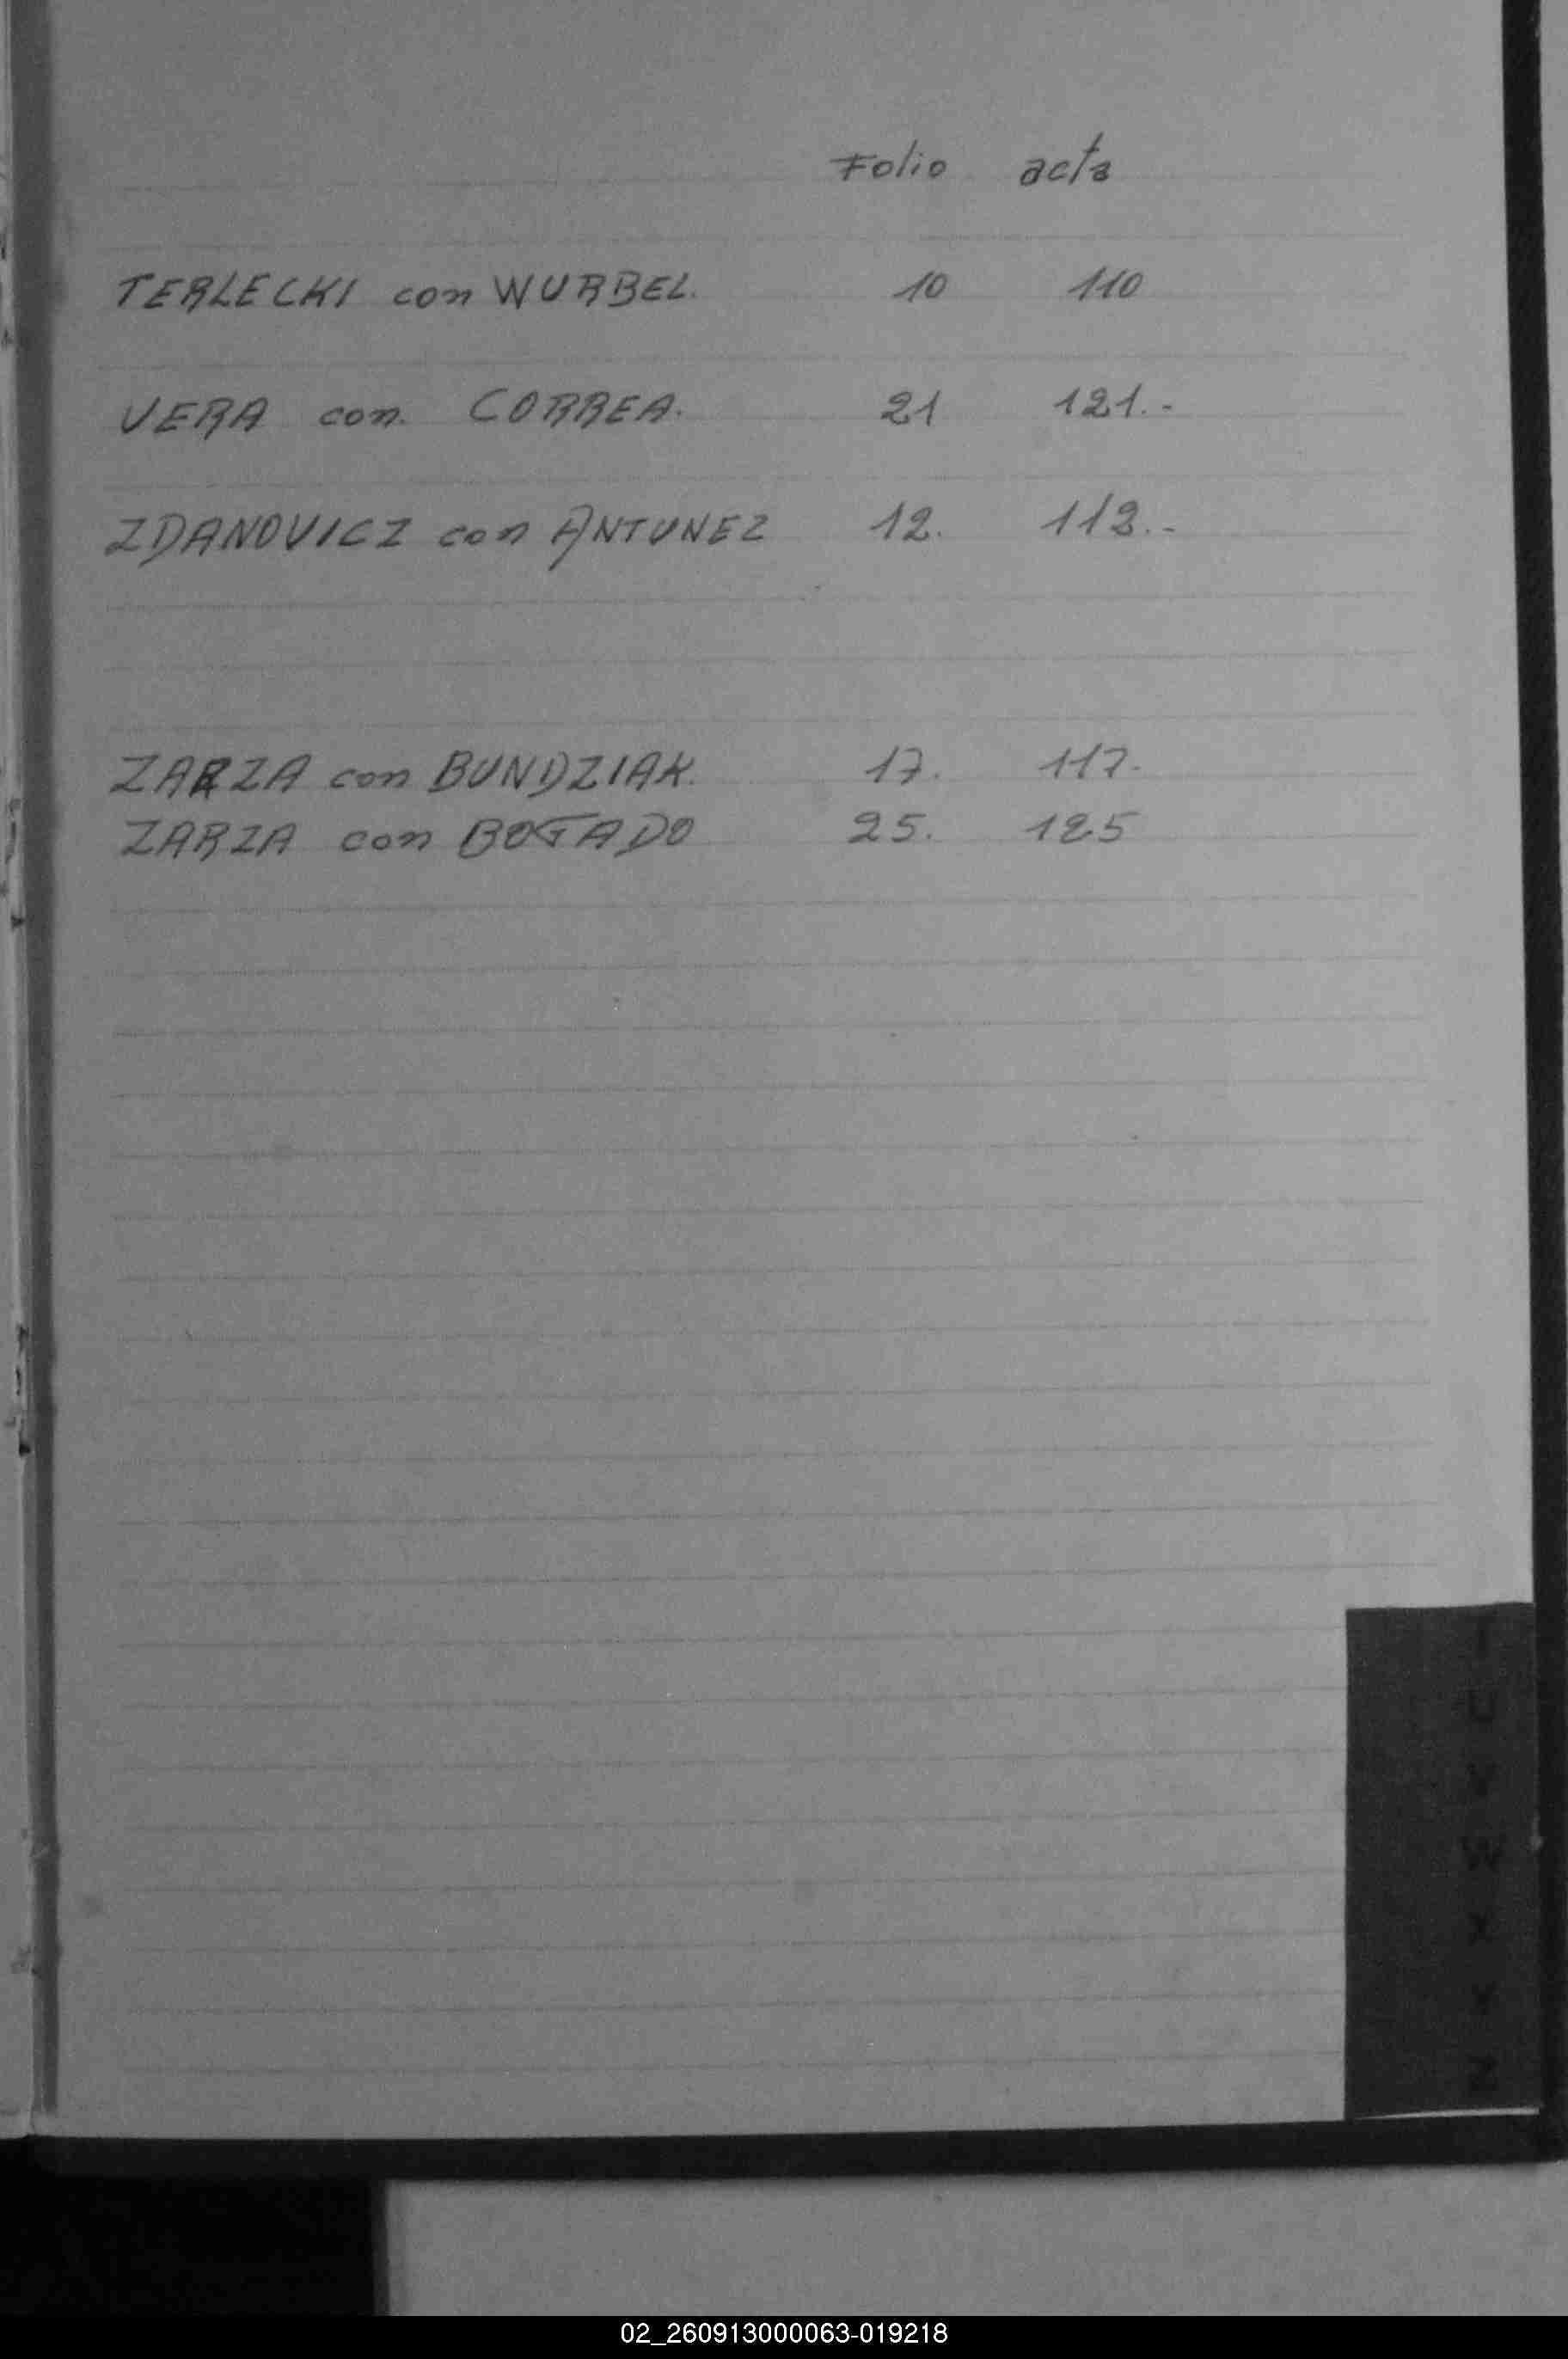 Folio acta
TERLECKI con WURBEL. 10 110
VERA con. CORREA. 21 121.-
ZDANOVICZ con ANTUNEZ 12. 112.-
ZARZA con BUNDZIAK. 17. 117.-
ZARZA con BOGADO 25. 125
T
U
V
W
X
Y
Z
02_260913000063-019218